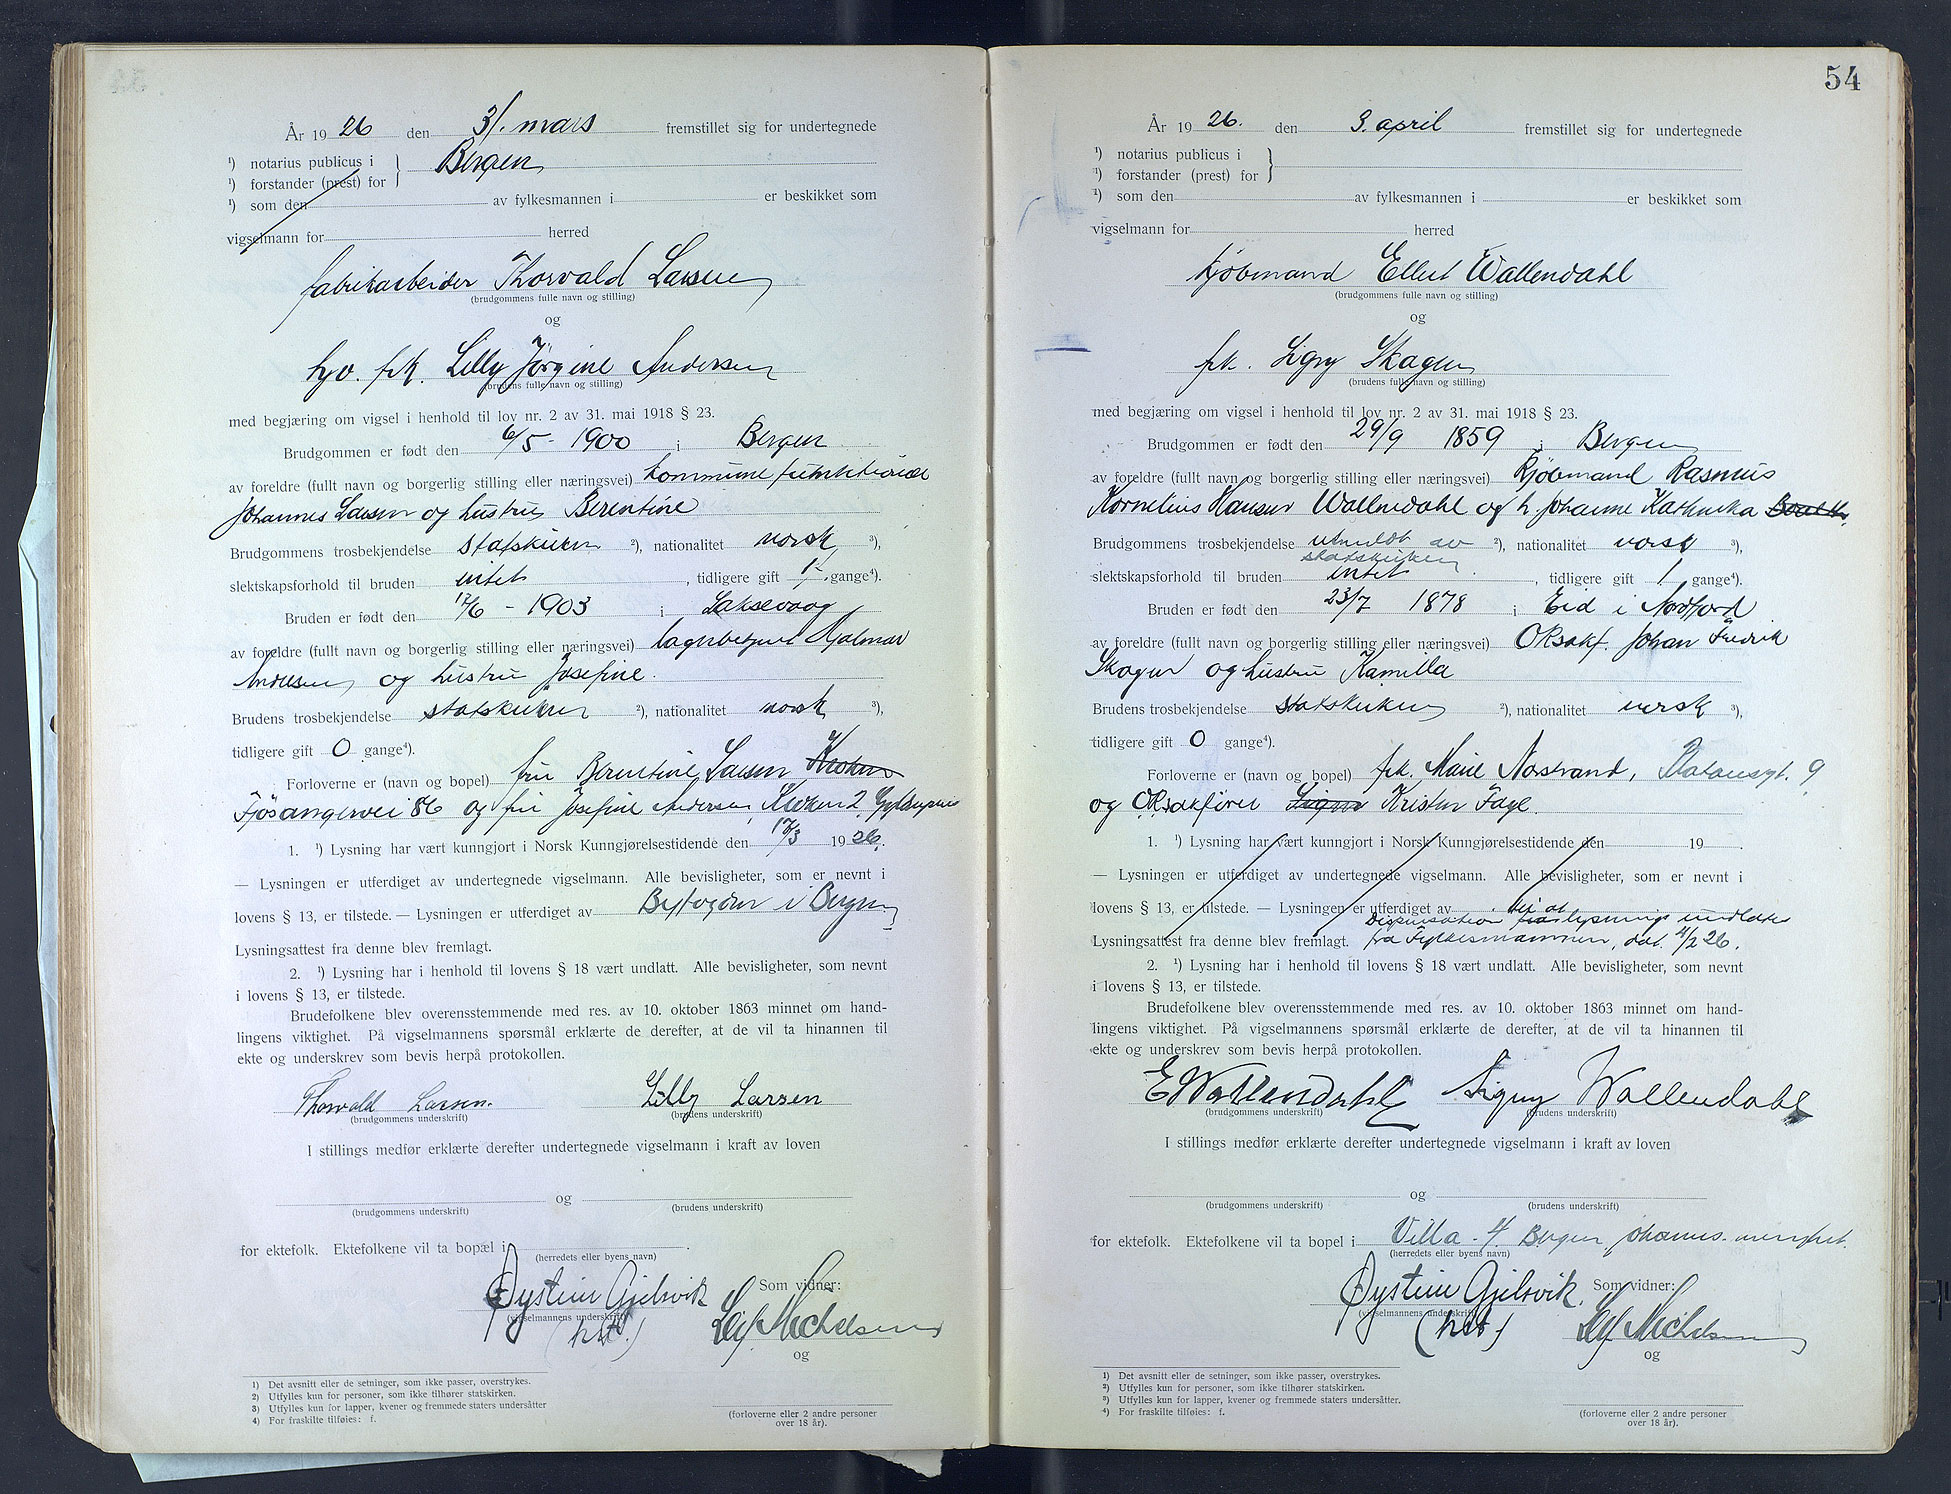 År 1926 den 31. mars fremstillet sig for undertegnede
¹) notarius publicus i
¹) forstander (prest) for } Bergen
¹) som den av fylkesmannen i er beskikket som
vigselmann for herred
fabrikarbeider Thorvald Larsen
(brudgommens fulle navn og stilling)
og
hjv. frk. Lilly Jörgine Andersen
(brudens fulle navn og stilling)
med begjæring om vigsel i henhold til lov nr. 2 av 31. mai 1918 § 23.
Brudgommen er født den 6/5 - 1900 i Bergen
av foreldre (fullt navn og borgerlig stilling eller næringsvei) kommune funktionær
Johannes Larsen og hustru Berentine
Brudgommens trosbekjendelse statskirken ²), nationalitet norsk ³),
slektskapsforhold til bruden intet , tidligere gift 1 gange⁴).
Bruden er født den 12/6 - 1903 i Laksevaag
av foreldre (fullt navn og borgerlig stilling eller næringsvei) lagerbetjent Hjalmar
Andersen og hustru Josefine.
Brudens trosbekjendelse statskirken ²), nationalitet norsk ³),
tidligere gift 0 gange⁴).
Forloverne er (navn og bopel) fru Berentine Larsen Kroken
Fjösangervei 86 og fru Josefine Andersen, Kroken 2, Gyldenpris
1. ¹) Lysning har vært kunngjort i Norsk Kunngjørelsestidende den 17/3 1926.
— Lysningen er utferdiget av undertegnede vigselmann. Alle bevisligheter, som er nevnt i
lovens § 13, er tilstede. — Lysningen er utferdiget av Byfogden i Bergen
Lysningsattest fra denne blev fremlagt.
2. ¹) Lysning har i henhold til lovens § 18 vært undlatt. Alle bevisligheter, som nevnt
i lovens § 13, er tilstede.
Brudefolkene blev overensstemmende med res. av 10. oktober 1863 minnet om hand-
lingens viktighet. På vigselmannens spørsmål erklærte de derefter, at de vil ta hinannen til
ekte og underskrev som bevis herpå protokollen.
Thorvald Larsen. Lilly Larsen
(brudgommens underskrift) (brudens underskrift)
I stillings medfør erklærte derefter undertegnede vigselmann i kraft av loven
og
(brudgommens underskrift) (brudens underskrift)
for ektefolk. Ektefolkene vil ta bopæl i .
(herredets eller byens navn)
Øystein Gjelsvik Som vidner:
(vigselmannens underskrift)
(kst.) Leif Michelsen
og
¹) Det avsnitt eller de setninger, som ikke passer, overstrykes.
²) Utfylles kun for personer, som ikke tilhører statskirken.
³) Utfylles kun for lapper, kvener og fremmede staters undersåtter
⁴) For fraskilte tilføies: f.
(forloverne eller 2 andre personer
over 18 år).
54
År 1926. den 3. april fremstillet sig for undertegnede
¹) notarius publicus i
¹) forstander (prest) for }
¹) som den av fylkesmannen i er beskikket som
vigselmann for herred
kjøbmand Ellert Wallendahl
(brudgommens fulle navn og stilling)
og
frk. Signy Skagen
(brudens fulle navn og stilling)
med begjæring om vigsel i henhold til lov nr. 2 av 31. mai 1918 § 23.
Brudgommen er født den 29/9 1859 i Bergen
av foreldre (fullt navn og borgerlig stilling eller næringsvei) Kjøbmand Rasmus
Kornelius Hansen Wallendahl og h. Johanne Kathinka
Brudgommens trosbekjendelse utmeldt av ²), nationalitet norsk ³),
statskirken
slektskapsforhold til bruden intet , tidligere gift 1 gange⁴).
Bruden er født den 23/7 1878 i Eid i Nordfjord
av foreldre (fullt navn og borgerlig stilling eller næringsvei) ORsakf. Johan Fredrik
Skagen og hustru Kamilla
Brudens trosbekjendelse statskirken ²), nationalitet norsk ³),
tidligere gift 0 gange⁴).
Forloverne er (navn og bopel) frk. Marie Norstrand, Platousgt. 9
og ORsakfører Kristen Faye.
1. ¹) Lysning har vært kunngjort i Norsk Kunngjørelsestidende den 19 .
— Lysningen er utferdiget av undertegnede vigselmann. Alle bevisligheter, som er nevnt i
lovens § 13, er tilstede. — Lysningen er utferdiget av
Dispensation til at lysning undlates
Lysningsattest fra denne blev fremlagt. fra Fylkesmannen, dat. 4/2 26.
2. ¹) Lysning har i henhold til lovens § 18 vært undlatt. Alle bevisligheter, som nevnt
i lovens § 13, er tilstede.
Brudefolkene blev overensstemmende med res. av 10. oktober 1863 minnet om hand-
lingens viktighet. På vigselmannens spørsmål erklærte de derefter, at de vil ta hinannen til
ekte og underskrev som bevis herpå protokollen.
E Wallendahl Signy Wallendahl
(brudgommens underskrift) (brudens underskrift)
I stillings medfør erklærte derefter undertegnede vigselmann i kraft av loven
og
(brudgommens underskrift) (brudens underskrift)
for ektefolk. Ektefolkene vil ta bopel i Villa Bergen
(herredets eller byens navn)
Øystein Gjelsvik Som vidner:
(vigselmannens underskrift)
(kst.) Leif Michelsen
og
¹) Det avsnitt eller de setninger, som ikke passer, overstrykes.
²) Utfylles kun for personer, som ikke tilhører statskirken.
³) Utfylles kun for lapper, kvener og fremmede staters undersåtter.
⁴) For fraskilte tilføies: f.
(forloverne eller 2 andre personer
over 18 år).